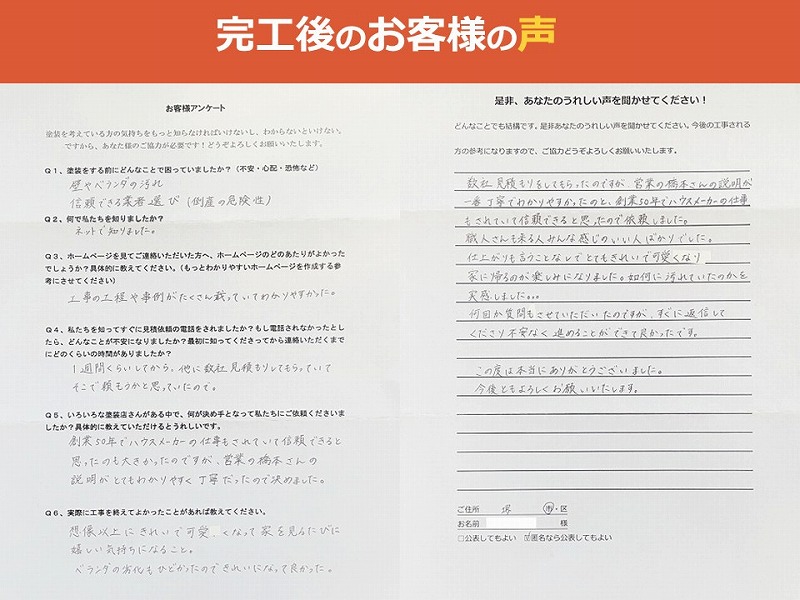 完工後のお客様の声
お客様アンケート
塗装を考えている方の気持ちをもっと知らなければいけないし、わからないといけない。
ですから、あなた様のご協力が必要です！どうぞよろしくお願いいたします。
Q1、塗装をする前にどんなことで困っていましたか？（不安・心配・恐怖など）
壁やベランダの汚れ
信頼できる業者選び（倒産の危険性）
Q2、何で私たちを知りましたか？
ネットで知りました。
Q3、ホームページを見てご連絡いただいた方へ、ホームページのどのあたりがよかった
でしょうか？具体的に教えてください。（もっとわかりやすいホームページを作成する参
考にさせてください）
工事の工程や事例がたくさん載っていてわかりやすかった。
Q4、私たちを知ってすぐに見積依頼の電話をされましたか？もし電話されなかったとし
たら、どんなことが不安になりましたか？最初に知ってくださってから連絡いただくまで
にどのくらいの時間がありましたか？
1週間くらいしてから、他に数社見積もりしてもらっていて
そこで頼もうかと思っていたので。
Q5、いろいろな塗装店さんがある中で、何が決め手となって私たちにご依頼くださいま
したか？具体的に教えていただけるとうれしいです。
創業50年でハウスメーカーの仕事もされていて信頼できると
思ったのも大きかったのですが、営業の橋本さんの
説明がとてもわかりやすく丁寧だったので決めました。
Q6、実際に工事を終えてよかったことがあれば教えてください。
想像以上にきれいで可愛くなって家を見るたびに
嬉しい気持ちになること。
ベランダの劣化もひどかったのできれいになって良かった。
是非、あなたのうれしい声を聞かせてください！
どんなことでも結構です。是非あなたのうれしい声を聞かせてください。今後の工事される
方の参考になりますので、ご協力どうぞよろしくお願いいたします。
数社見積もりをしてもらったのですが、営業の橋本さんの説明が
一番丁寧でわかりやすかったのと、創業50年でハウスメーカーの仕事
もされていて信頼できると思ったので依頼しました。
職人さんも来る人みんな感じのいい人ばかりでした。
仕上がりも言うことなしでとてもきれいで可愛くなり
家に帰るのが楽しみになりました。如何に汚れていたのかを
実感しました。。。
何回か質問もさせていただいたのですが、すぐに返信して
くださり不安なく進めることができて良かったです。
この度は本当にありがとうございました。
今後ともよろしくお願いいたします。
ご住所 堺 市・区
お名前 様
□公表してもよい ☑匿名なら公表してもよい